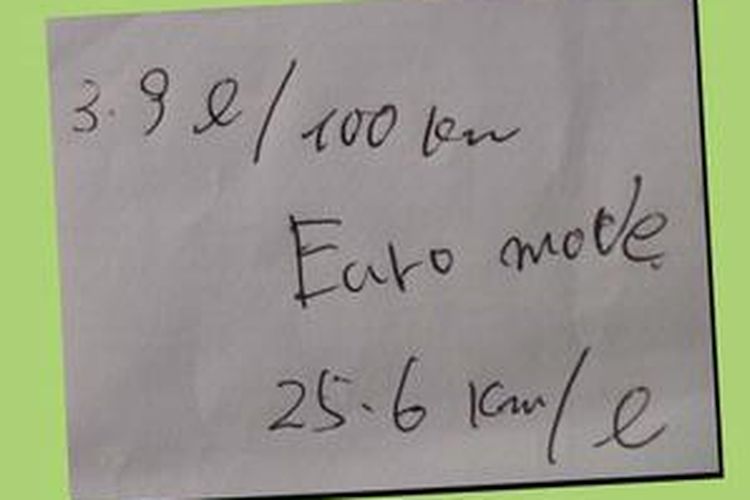 3.9 l/100 km
Euro mode
25.6 km/l